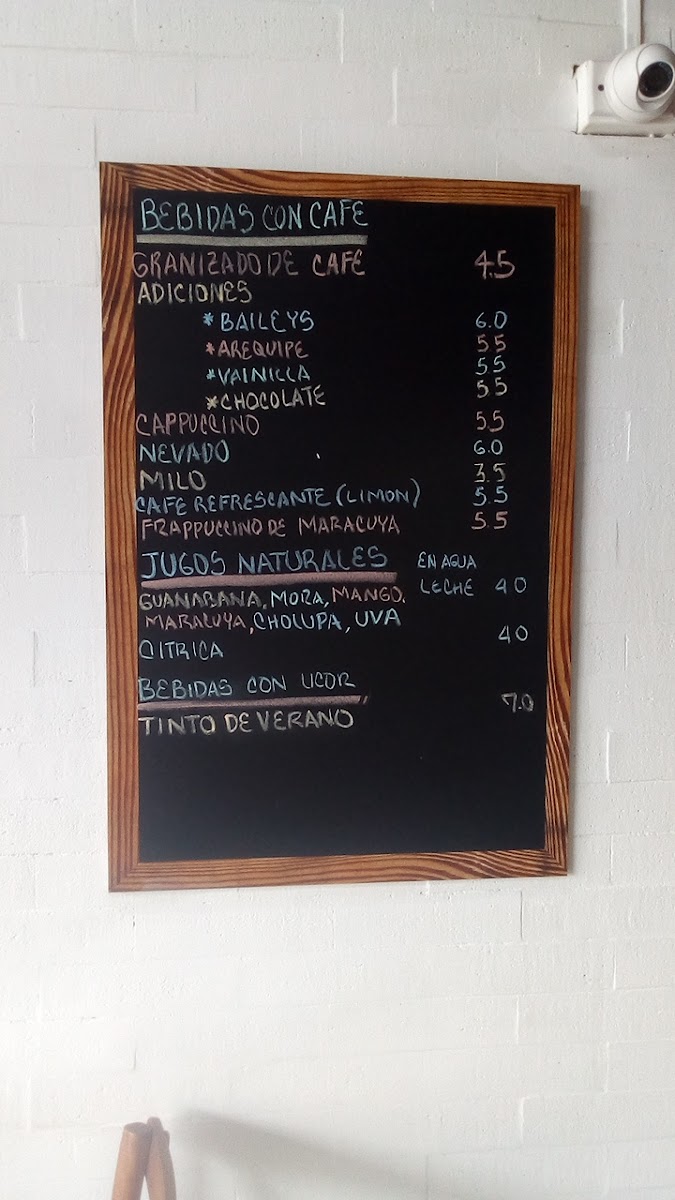 BEBIDAS CON CAFE
GRANIZADO DE CAFE 4.5
ADICIONES
*BAILEYS 6.0
*AREQUIPE 5.5
*VAINILLA 5.5
*CHOCOLATE 5.5
CAPPUCCINO 5.5
NEVADO 6.0
MILO 3.5
CAFE REFRESCANTE (LIMON) 5.5
FRAPPUCCINO DE MARACUYA 5.5
JUGOS NATURALES EN AGUA
LECHE 40
GUANABANA, MORA, MANGO.
MARACUYA, CHOLUPA, UVA
CITRICA 40
BEBIDAS CON LICOR
TINTO DE VERANO 7.0